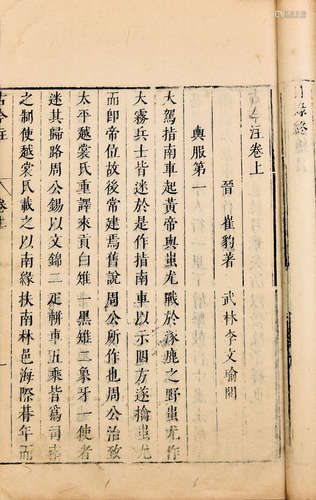 古今注卷上
晉 崔豹著 武林李文瑜閱
輿服第一
大駕指南車起黃帝與蚩尤戰於涿鹿之野蚩尤作
大霧兵士皆迷於是作指南車以示四方遂擒蚩尤
而即帝位故後常建焉舊說周公所作也周公治致
太平越裳氏重譯來貢白雉一黑雉二象牙一使者
迷其歸路周公錫以文錦二疋軿車五乘皆為司南
之制使越裳氏載之以南緣扶南林邑海際朞年而
古今注 卷上